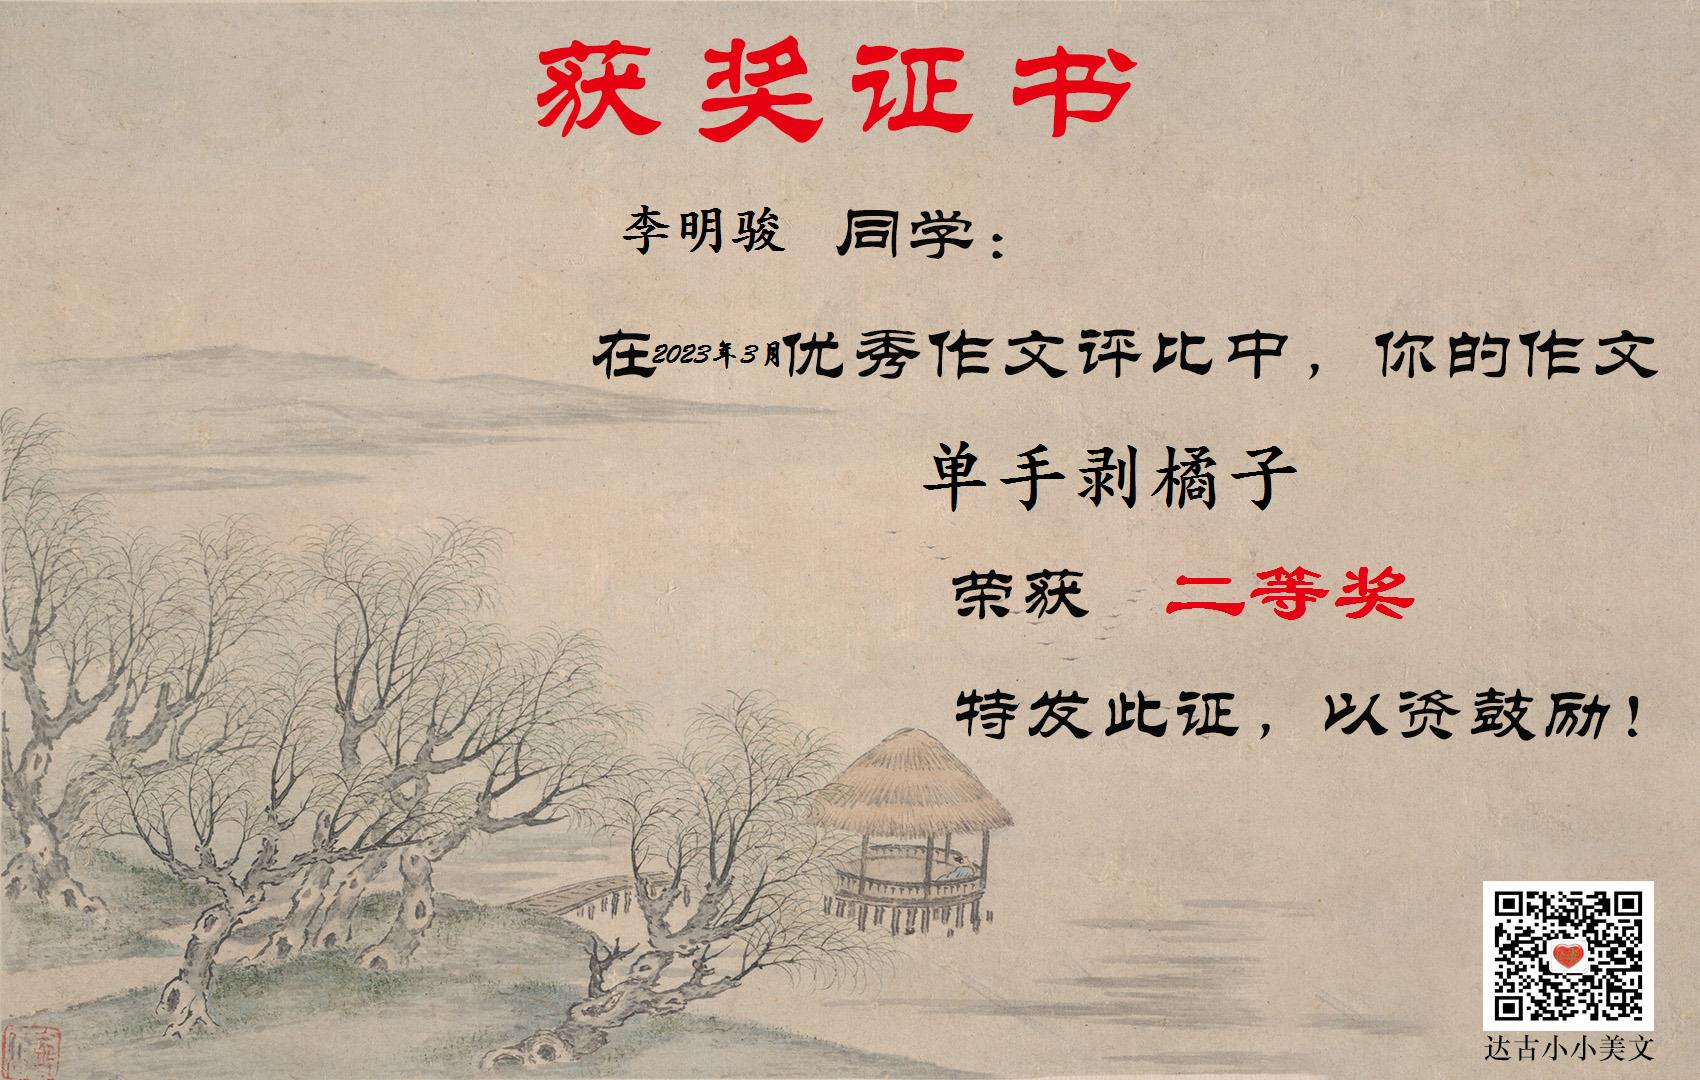 获奖证书
李明骏 同学：
在2023年3月优秀作文评比中，你的作文
单手剥橘子
荣获 二等奖
特发此证，以资鼓励！
达古小小美文